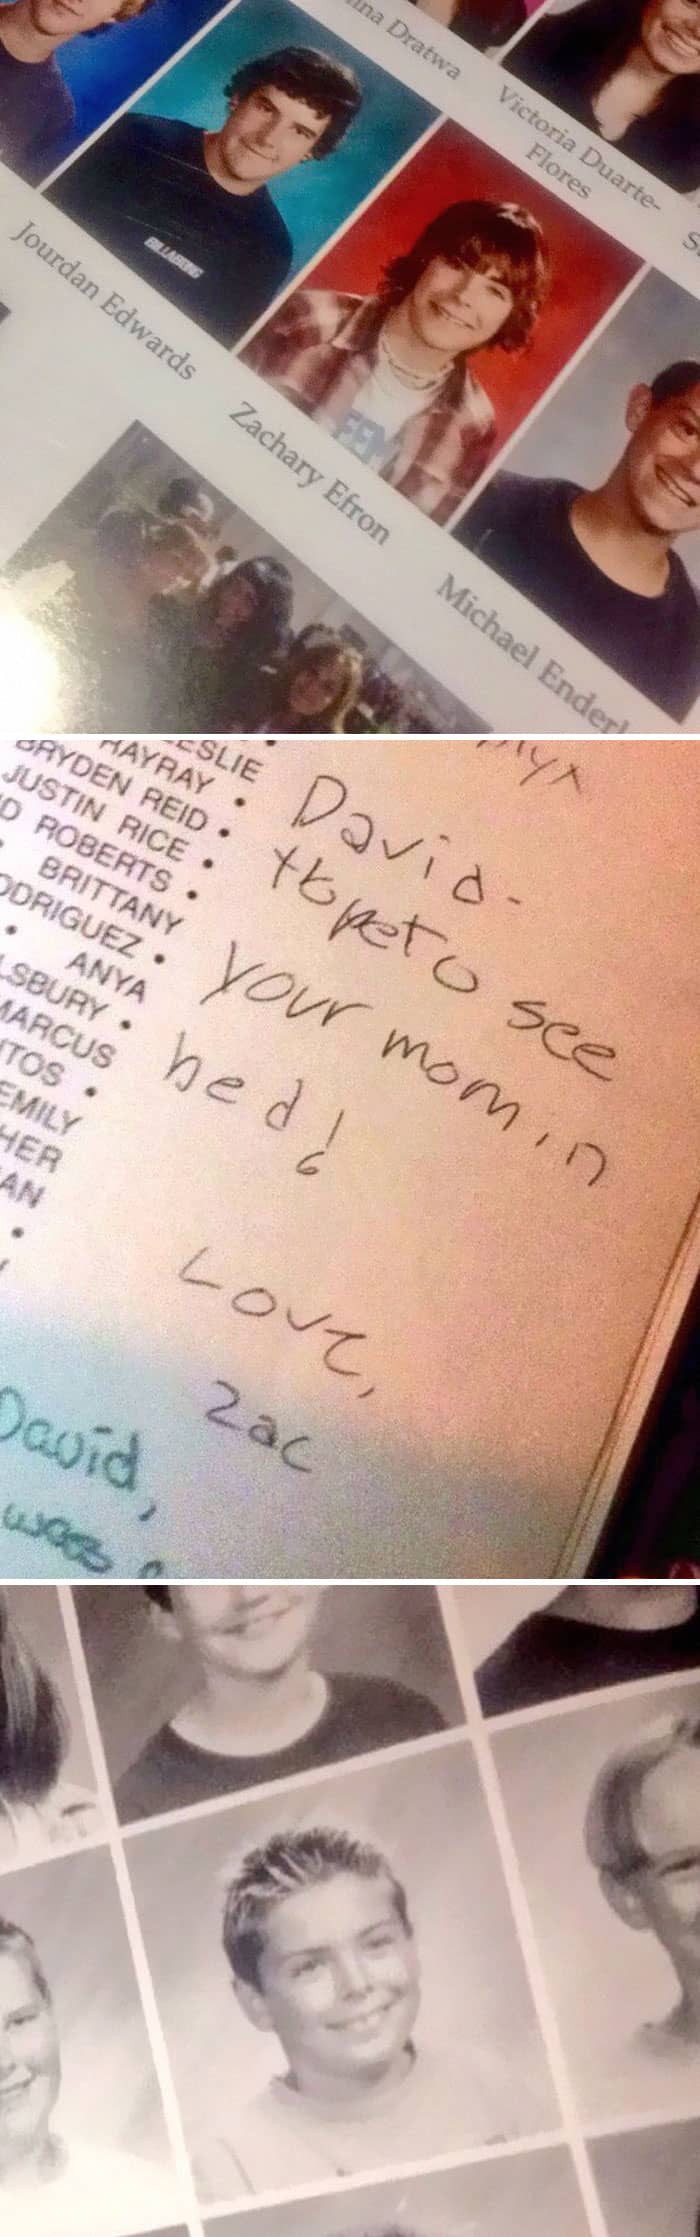 Dratwa
Victoria Duarte-
Flores
BILLABONG
Jourdan Edwards
Zachary Efron
Michael
LESLIE
RAYRAY •
BRYDEN REID •
JUSTIN RICE •
ROBERTS •
BRITTANY
•
ANYA
•
MARCUS
•
EMILY
David-
Hope to see
your mom in
bed!
Love,
Zac
David,
was